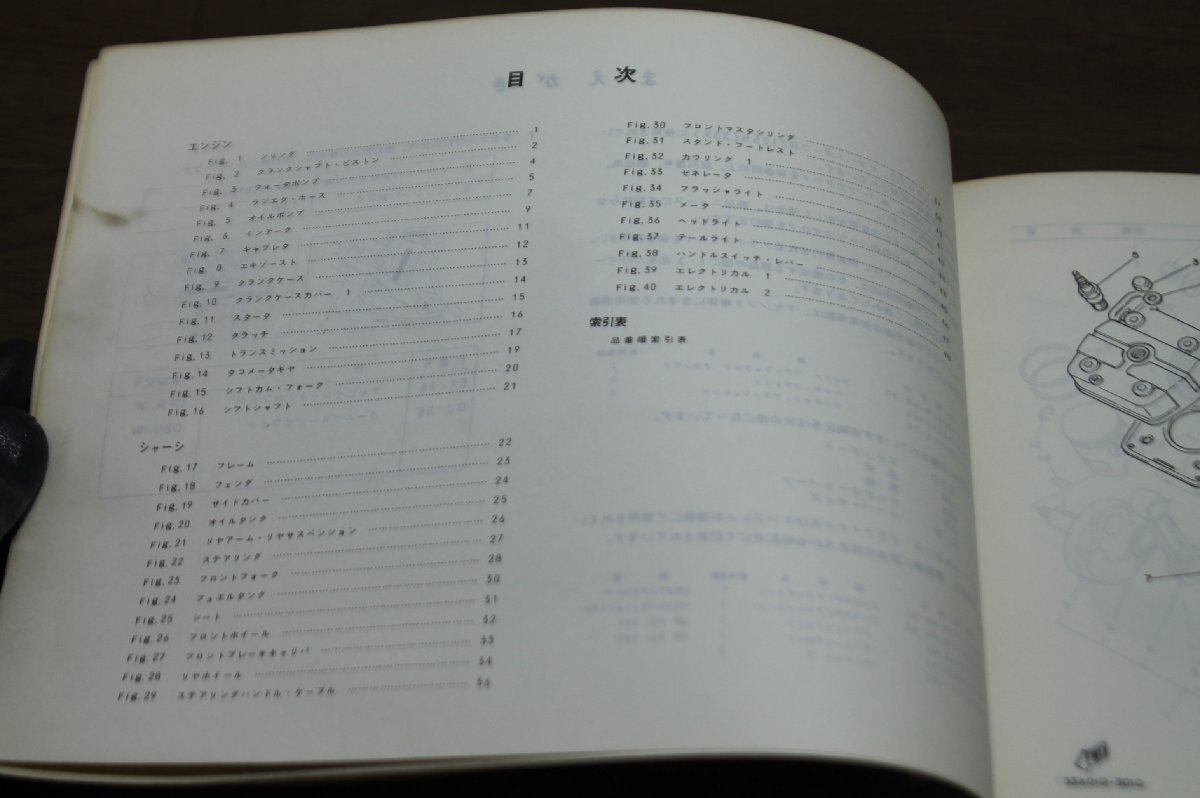 目 次
エンジン
Fig. 1 シリンダ 1
Fig. 2 クランクシャフト・ピストン 2
Fig. 3 ウォータポンプ 4
Fig. 4 ラジエタ・ホース 5
Fig. 5 オイルポンプ 7
Fig. 6 インテーク 9
Fig. 7 キャブレタ 11
Fig. 8 エキゾースト 12
Fig. 9 クランクケース 13
Fig. 10 クランクケースカバー 1 14
Fig. 11 スタータ 15
Fig. 12 クラッチ 16
Fig. 13 トランスミッション 17
Fig. 14 タコメータギヤ 19
Fig. 15 シフトカム・フォーク 20
Fig. 16 シフトシャフト 21
シャーシ
Fig. 17 フレーム 22
Fig. 18 フェンダ 23
Fig. 19 サイドカバー 24
Fig. 20 オイルタンク 25
Fig. 21 リヤアーム・リヤサスペンション 26
Fig. 22 ステアリング 27
Fig. 23 フロントフォーク 28
Fig. 24 フュエルタンク 30
Fig. 25 シート 31
Fig. 26 フロントホイール 32
Fig. 27 フロントブレーキキャリパ 33
Fig. 28 リヤホイール 34
Fig. 29 ステアリングハンドル・ケーブル 36
Fig. 30 フロントマスタシリンダ
Fig. 31 スタンド・フートレスト
Fig. 32 カウリング 1
Fig. 33 ゼネレータ
Fig. 34 フラッシャライト
Fig. 35 メータ
Fig. 36 ヘッドライト
Fig. 37 テールライト
Fig. 38 ハンドルスイッチ・レバー
Fig. 39 エレクトリカル 1
Fig. 40 エレクトリカル 2
索引表
品番順索引表
5
3
7
FWD